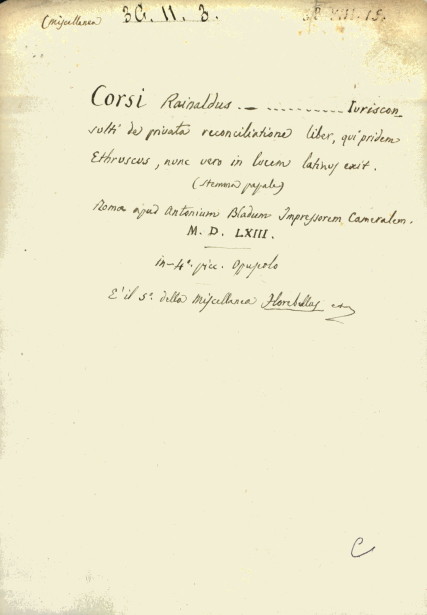 (miscellanea 3G. 11. 3.
Corsi Rainaldus — . — .......... Iuriscon_
sulti de privata reconciliatione liber, qui pridem
Ethruscus, nunc vero in lucem latinus exit.
(stemma papale)
Romæ apud Antonium Bladum Impressorem Cameralem.
M. D. LXIII.
in-4°. picc. Opuscolo
E' il 5°. della Miscellanea Florebellus
C